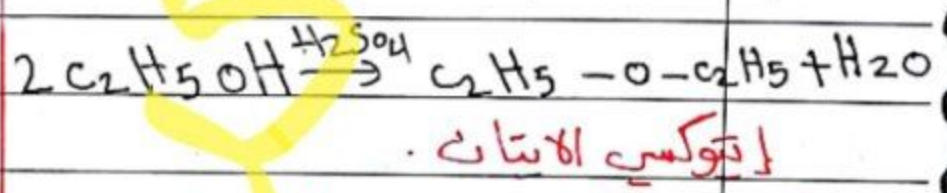 2C2H5OH H2SO4→ C2H5-O-C2H5+H2O
إيتوكسي الايتان.